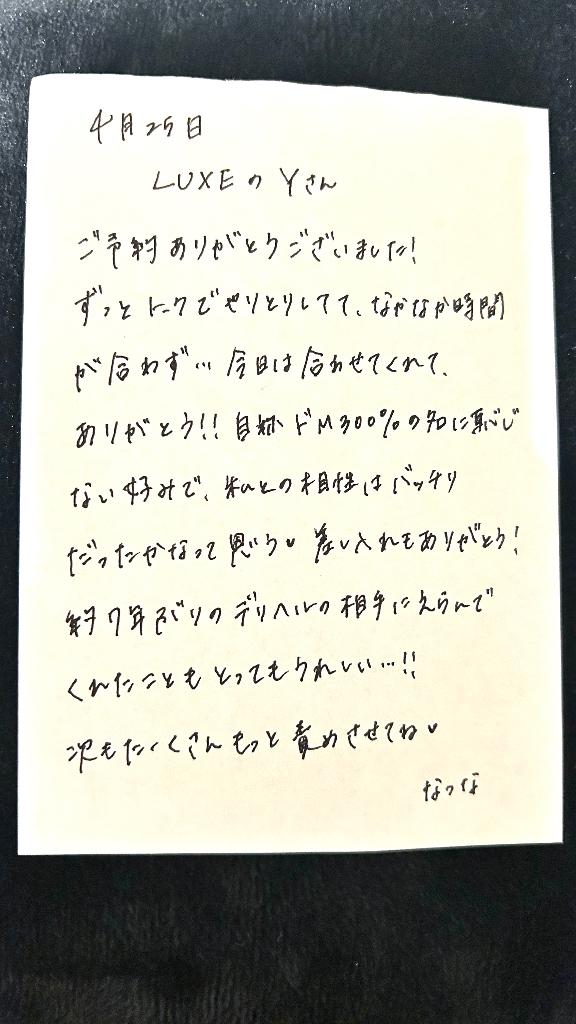 4月25日
LUXEの Yさん
ご予約ありがとうございました!
ずっとトークでやりとりしてて、なかなか時間
が合わず… 今日は合わせてくれて、
ありがとう!! 自称ドM300%の名に恥じ
ない好みで、私との相性はバッチリ
だったかなって思う♥ 差し入れもありがとう!
約7年ぶりのデリヘルの相手にえらんで
くれたことも とってもうれしい…!!
次もたーくさんもっと責めさせてね♥
なつな